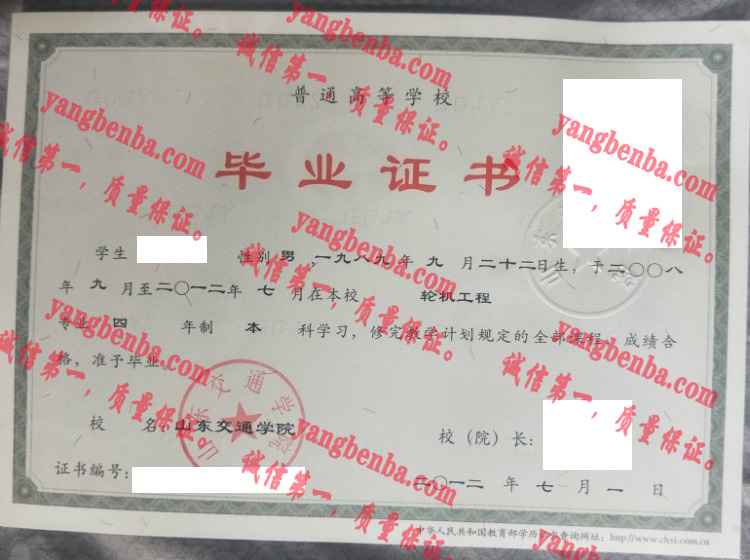 普通高等学校
毕业证书
学生 性别 男 ,一九八九年 九 月二十二日生, 于二〇〇八
年 九 月至二〇一二年 七 月在本校 轮机工程
专业 四 年制 本 科学习, 修完教学计划规定的全部课程, 成绩合
格, 准予毕业。
校 名: 山东交通学院
校 (院) 长:
证书编号:
二〇一二 年 七 月 一 日
中华人民共和国教育部学历证书查询网址: http://www.chsi.com.cn
山东交通学院
yangbenba.com
诚信第一, 质量保证。
yangbenba.com
诚信第一, 质量保证。
yangbenba.com
诚信第一, 质量保证。
yangbenba.com
诚信第一, 质量保证。
yangbenba.com
诚信第一, 质量保证。
yangbenba.com
诚信第一, 质量保证。
yangbenba.com
诚信第一, 质量保证。
yangbenba.com
诚信第一, 质量保证。